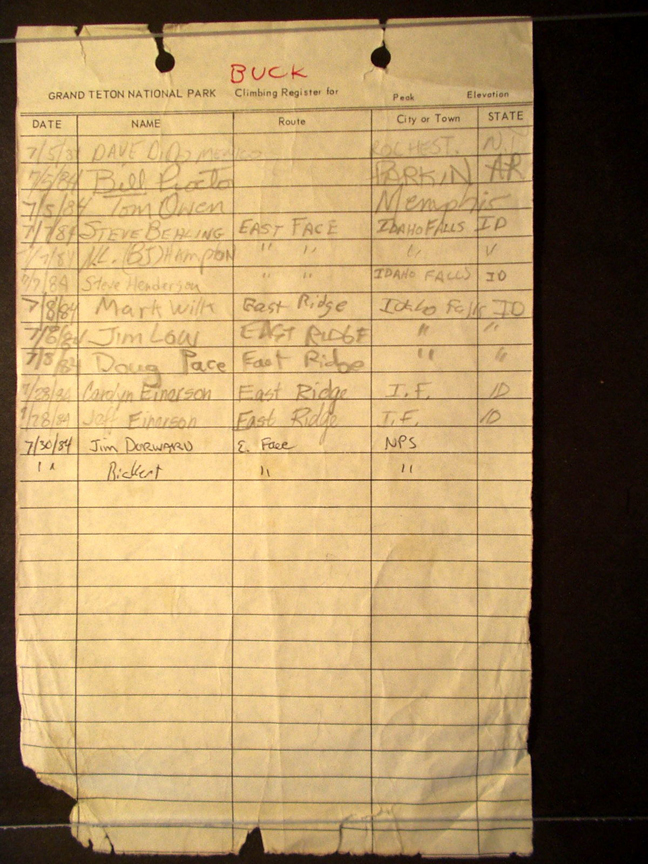 BUCK
GRAND TETON NATIONAL PARK Climbing Register for Peak Elevation
DATE NAME Route City or Town STATE
7/5/84 DAVE ROCHEST. N.Y.
7/5/84 Bill Procto PARKIN AR
7/5/84 Tom Owen Memphis
7/7/84 STEVE BEHLING EAST FACE IDAHO FALLS ID
7/7/84 (BJ) HAMPTON " " " "
7/7/84 Steve Henderson " " IDAHO FALLS ID
7/8/84 Mark Wilk East Ridge Idaho Falls ID
7/8/84 Jim Low EAST RIDGE " "
7/8/84 Doug Pace East Ridge " "
7/28/84 Carolyn Einerson East Ridge I.F. ID
7/28/84 Jeff Einerson East Ridge I.F. ID
7/30/84 Jim DORWARD E. Face NPS
" " Rickert " "